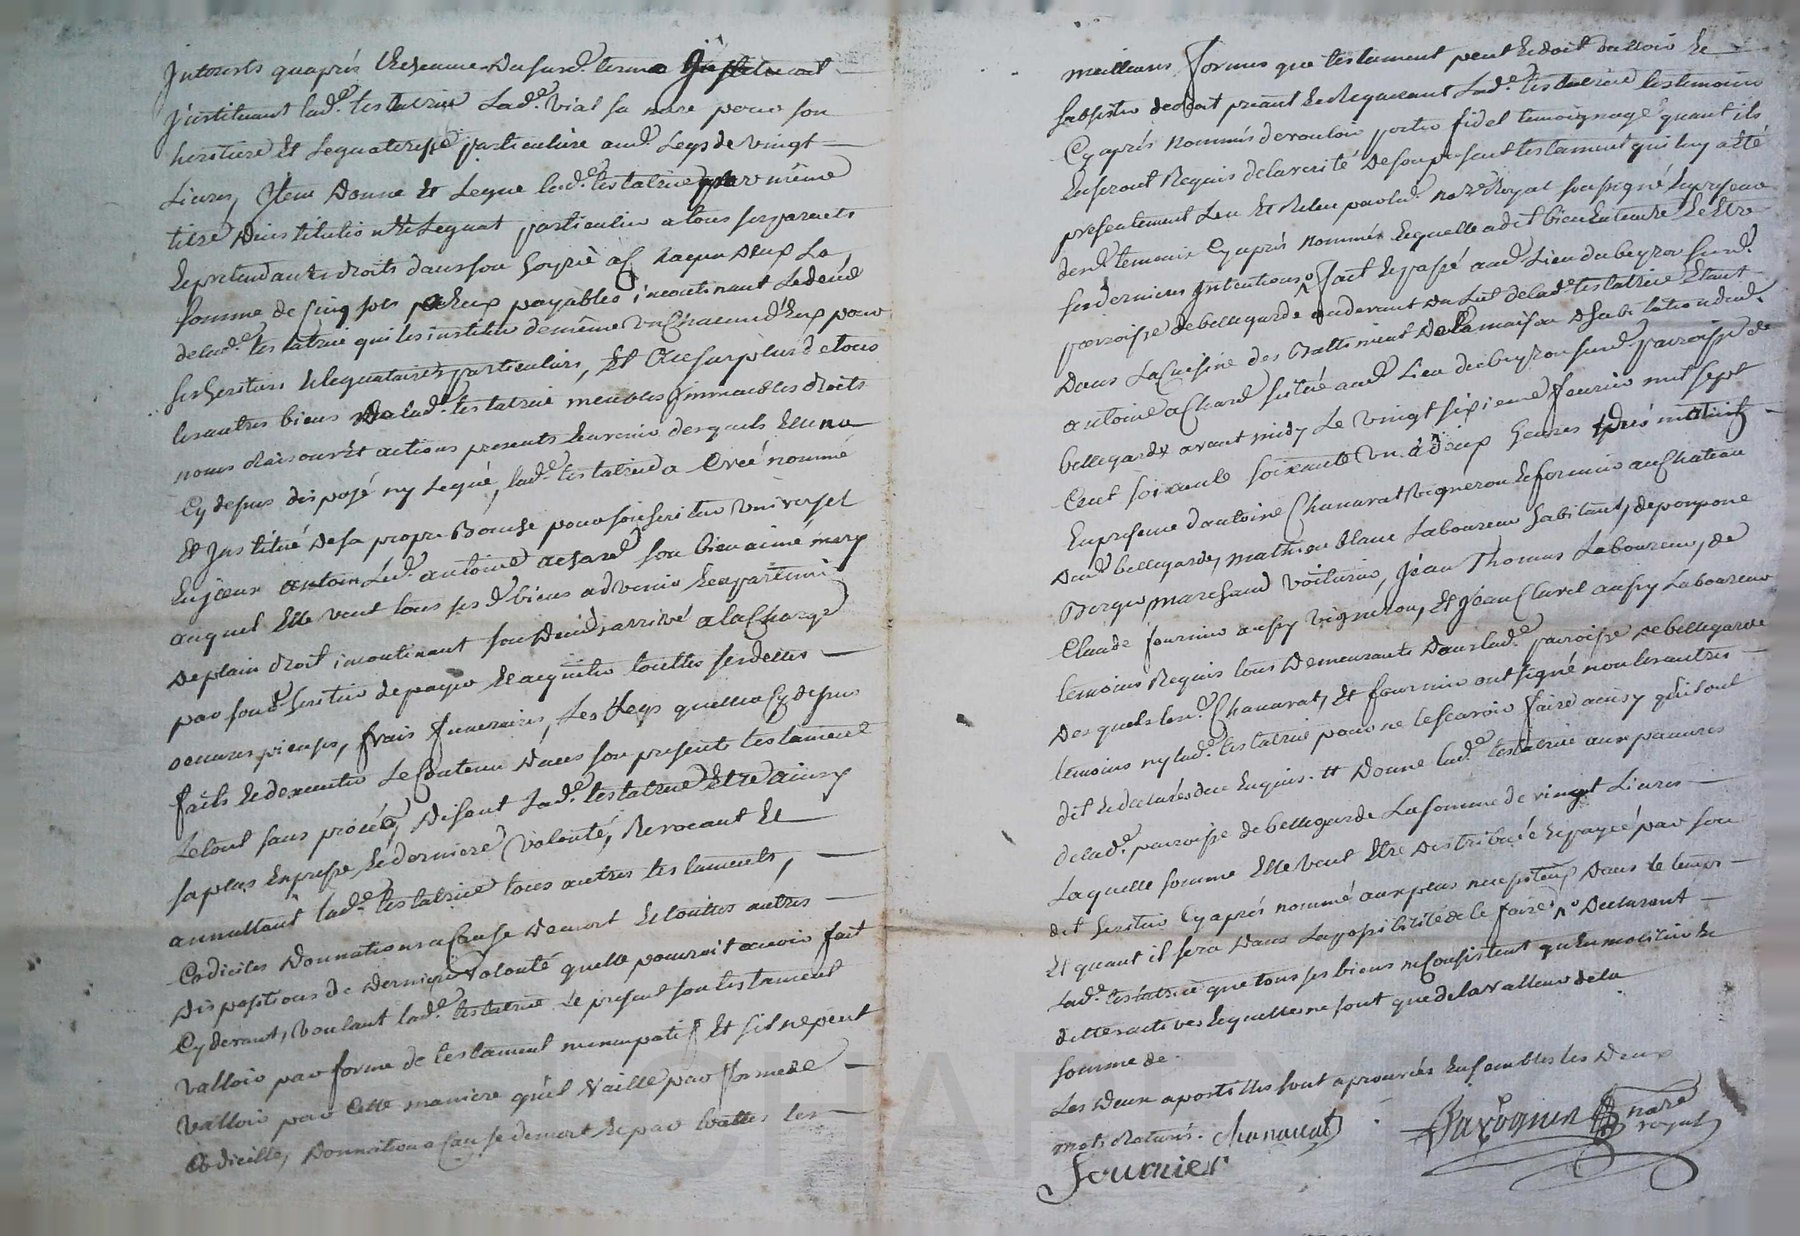 Interets qu'après l'echeance du susd. terme
Instituant lad.e testatrice lad.e vial sa mere pour son
heritiere et legataresse particuliere aud. legs de vingt
Livres, Item donne et legue lad.e testatrice par même
titre d'institution et legat particulier a tous ses parents
et pretendants droits dans son hoyrie a chaqun deux la
somme de cinq sols payables incontinant le deced
de lad.e testatrice qui les institue de même un chacun d'eux pour
ses heritiers et legataires particuliers, Et au surplus de tous
les autres biens de lad.e testatrice meubles immeubles droits
noms raisons et actions presents et avenir desquels elle n'a
Cy dessus disposé ny legué, lad.e testatrice a creé nommé
et institué de sa propre bouche pour son heritier universel
led. antoine achard son bien aimé mary
auquel elle veut tous ses d. biens advenir et apartenir
de plain droit incontinant son deceds arrivé a la charge
par sond. heritier de payer et acquitter touttes ses dettes
oeuvres pieuses, frais funeraires, les legs quelle a cy dessus
faits et d'executer le contenu dans son present testament
le tout sans procés, disant lad.e testatrice etre ainsy
sa plus expresse et derniere volonté, Revocant et
annullant lad.e testatrice tous autres testaments,
Codiciles donnations a cause de mort et touttes autres
dispositions de derniere volonté quelle pourroit avoir fait
Cy devant, voulant lad.e testatrice le present son testament
valloir par forme de testament nuncupatif et s'il ne peut
valloir par cette maniere qu'il vaille par forme de
Codicille, donnation a cause de mort et par touttes les
meilleures formes que testament peut et doit valloir et
subsister de droit priant et requerant lad.e testatrice les temoins
Cy après nommés de vouloir porter fidel temoignage quant ils
en seront requis de la verité de son present testament qui luy a été
presentement leu et releu par led. no.re Royal soussigné en presence
desd. temoins cy après nommés lequel elle a dit bien entendre et être
ses dernieres intentions Fait et passé aud. lieu du beyron susd.
parroisse de bellegarde au devant du lit de lad.e testatrice etant
dans la cuisine des battiment de la maison d'habitation dud.
antoine achard située aud. lieu du beyron susd. parroisse de
bellegarde avant midy le vingt sixieme fevrier mil sept
Cent soixante un a deux heures
En presence d'antoine Chanavat vigneron et fermier au chateau
dud. bellegarde, mathieu blanc laboureur habitant,
marchand voiturier, Jean Thomas laboureur, de
Claude fournier aussy vigneron, et Jean Clavel aussy laboureur
temoins requis tous demeurants dans lad.e parroisse de bellegarde
desquels lesd. Chanavat, et fournier ont signé non les autres
temoins ny lad.e testatrice pour ne le scavoir faire ainsy qu'ils ont
dit et declarés de ce enquis. et donne lad.e testatrice aux pauvres
de lad.e parroisse de bellegarde la somme de vingt Livres
laquelle somme elle veut etre distribuée et payée par son
dit heritier cy après nommé aux plus necessiteux dans le temps
et quant il sera dans la possibilité de le faire declarant
lad.e testatrice que tous ses biens ne consistent qu'en mobilier et
dettes actives lequelles ne sont que de la valleur de la
somme de.
Les deux apostilles sont aprouvées ensembles les deux
mots raturés. Chanavat
Fournier
no.re royal